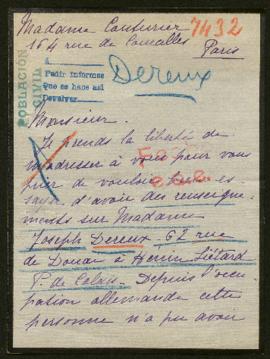 Madame Couturier
7432
164 rue de Courcelles
Paris
POBLACIÓN
CIVIL
Pedir informes
que se hace así
Devolver
Dereux
Monsieur.
Je prends la liberté de
m'adresser à vous pour vous
prier de vouloir bien
d'avoir des renseigne
ments sur Madame
Joseph Dereux 62 rue
de Douai à Henin Liétard
P. de Calais. Depuis l'occu
pation allemande cette
personne n'a pu avoir